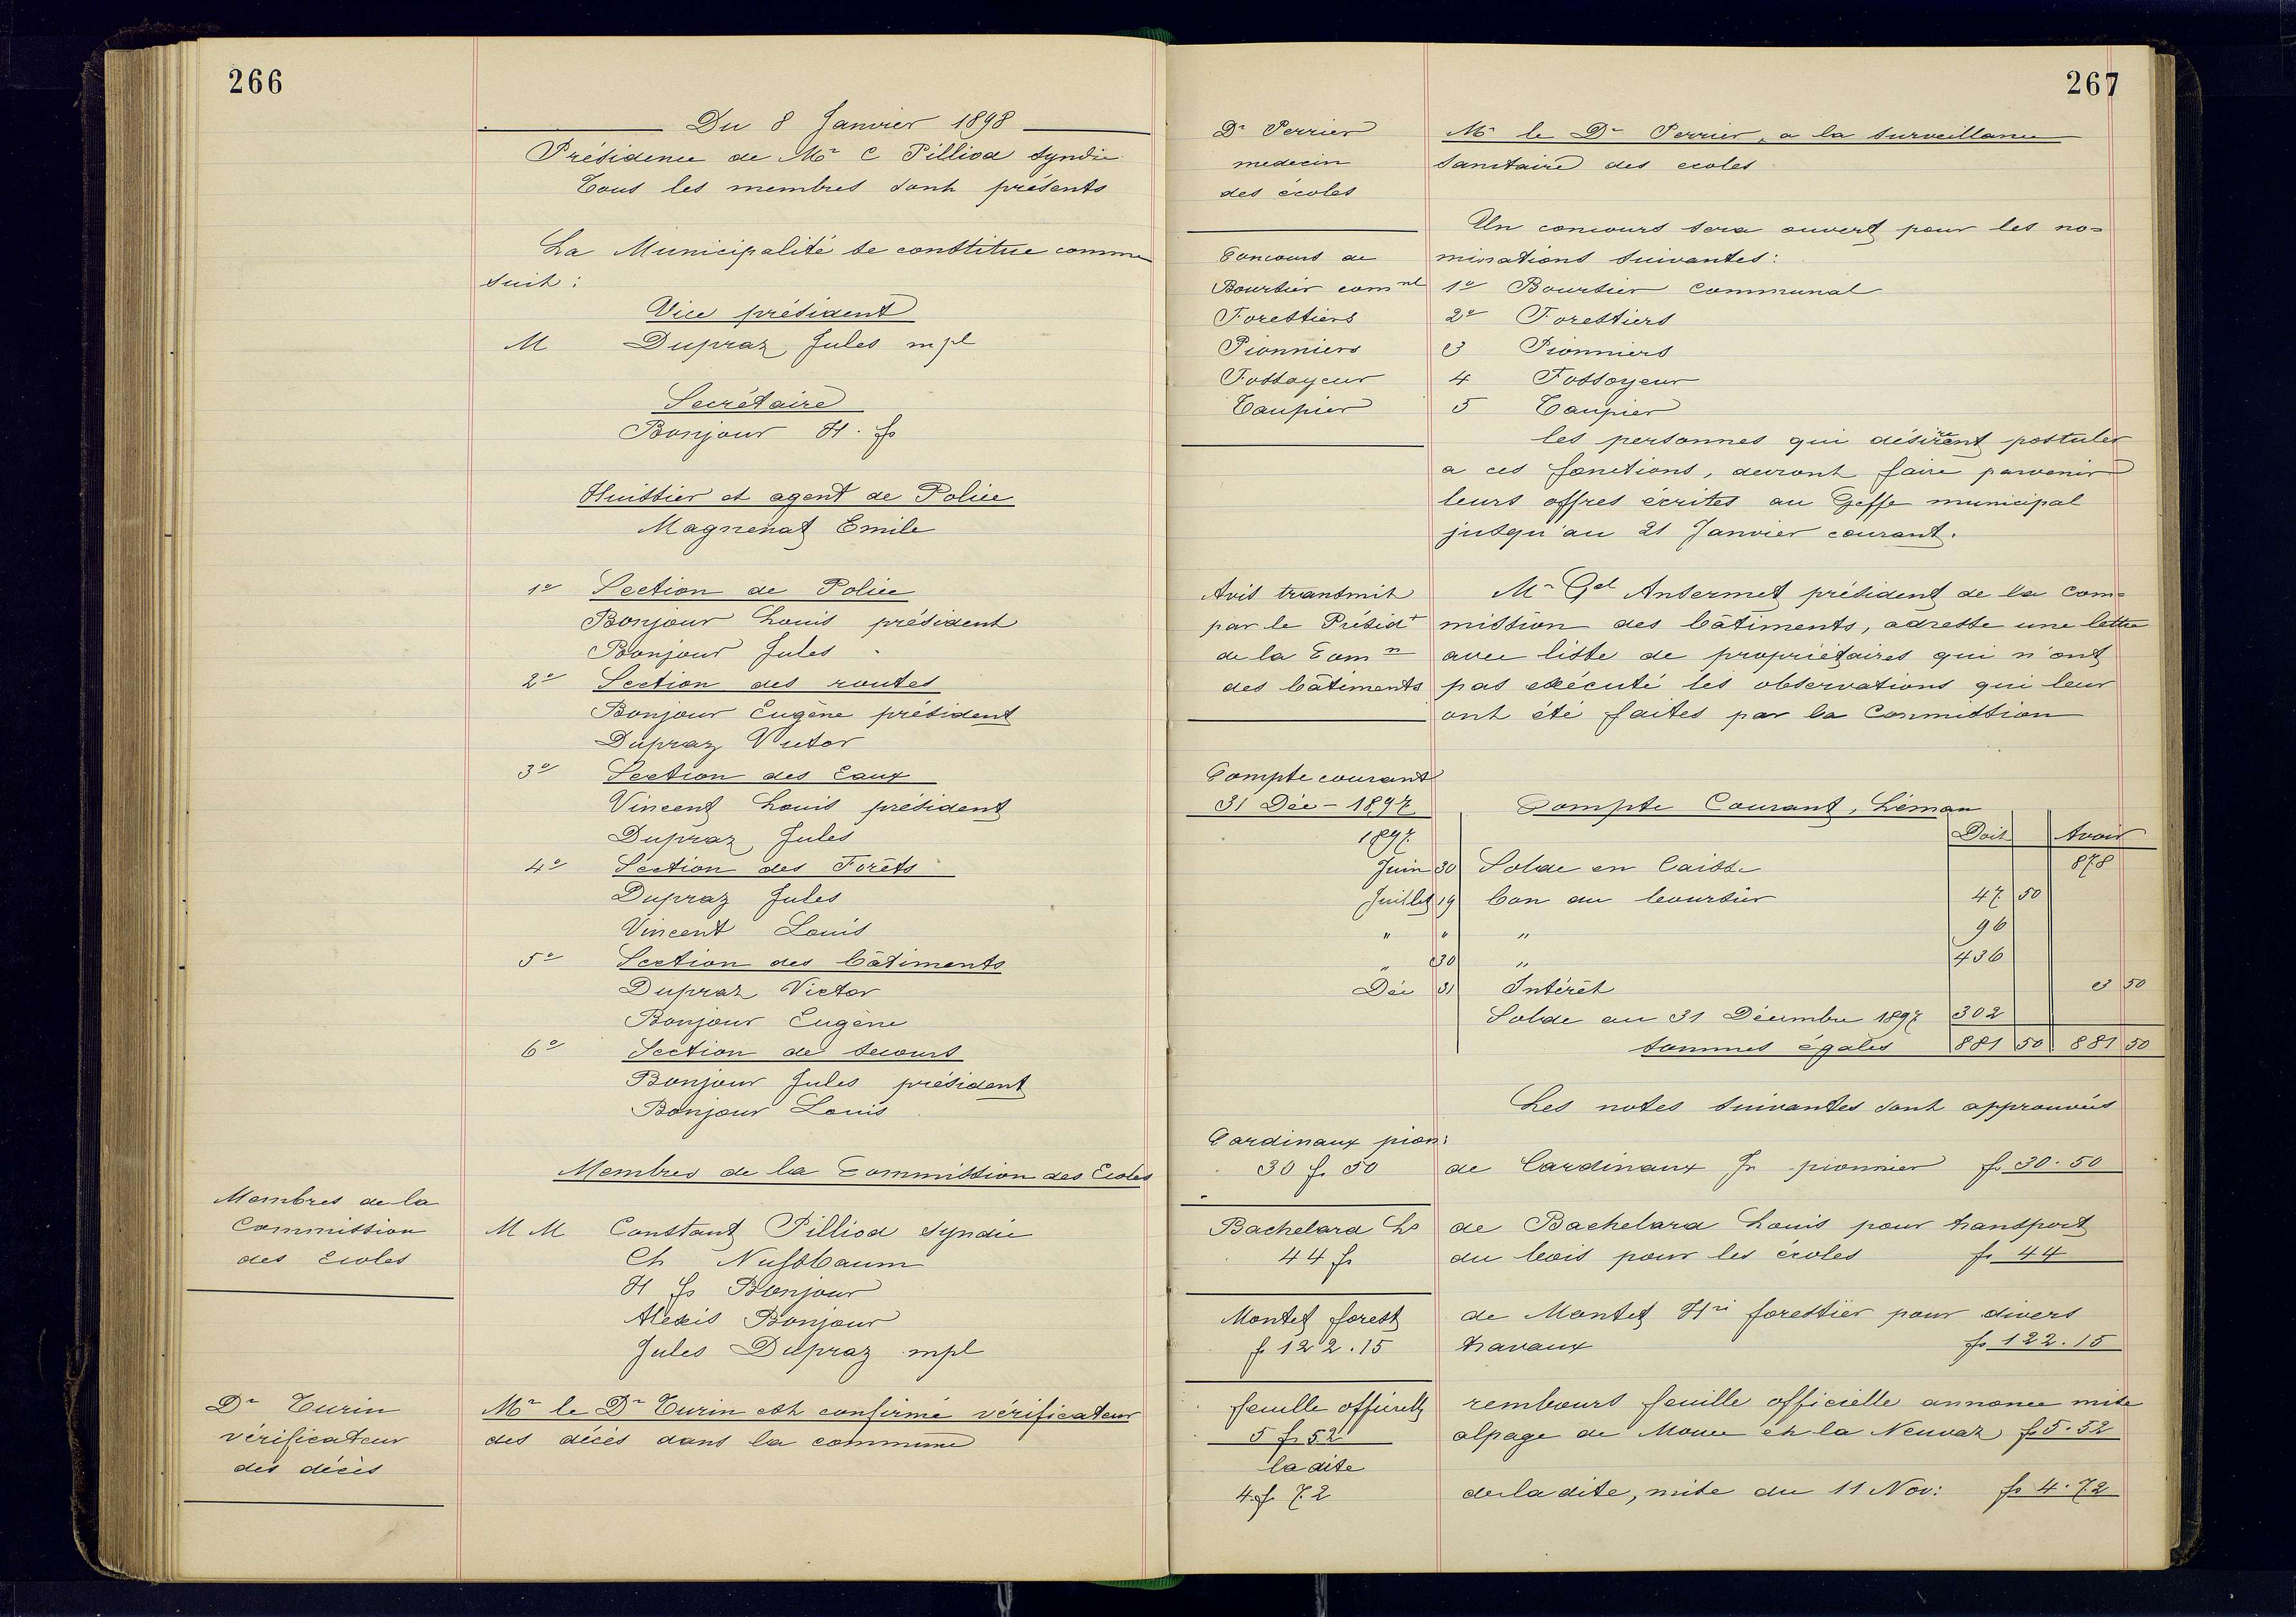 266
Du 8 Janvier 1898
Présidence de Mr C Pilliod Syndic
Tous les membres sont présents
La Municipalité se constitue comme
suit :
Vice président
M Dupraz Jules mpl
Secrétaire
Bonjour H. fs
Huissier et agent de Police
Magnenat Emile
1o Section de Police
Bonjour Louis président
Bonjour Jules
2o Section des routes
Bonjour Eugène président
Dupraz Victor
3o Section des Eaux
Vincent Louis président
Dupraz Jules
4o Section des Forêts
Dupraz Jules
Vincent Louis
5o Section des bâtiments
Dupraz Victor
Bonjour Eugène
6o Section de secours
Bonjour Jules président
Bonjour Louis
Membres de la Commission des Ecoles
Membres de la
Commission
des Ecoles
M M Constant Pilliod Syndic
Ch Nussbaum
H fs Bonjour
Alexis Bonjour
Jules Dupraz mpl
Dr Turin
vérificateur
des décès
Mr le Dr Turin est confirmé vérificateur
des décès dans la commune
267
Dr Perrier
medecin
des écoles
Mr le Dr Perrier, a la surveillance
sanitaire des ecoles
Un concours sera ouvert pour les no=
Concours de
Boursier comnl
Forestiers
Pionniers
Fossoyeur
Taupier
minations suivantes :
1o Boursier Communal
2o Forestiers
3 Pionniers
4 Fossoyeur
5 Taupier
les personnes qui désirent postuler
a ces fonctions, devront faire parvenir
leurs offres écrites au Geffe municipal
jusqu'au 21 Janvier courant.
Avis transmis
par le Présidt
de la Comn
des bâtiments
Mr Gel Ansermet président de la com=
mission des bâtiments, adresse une lettre
avec liste de propriétaires qui n'ont
pas exécuté les observations qui leur
ont été faites par la Commission
Compte courant
31 Déc - 1897
Compte Courant, Léman
Doit Avoir
1897
Juin 30 Solde en Caisse 878
Juillet 19 bon au boursier 47 50
" " " 96
" 30 " 436
Déc 31 Intérêt 3 50
Solde au 31 Décembre 1897 302
sommes égales 881 50 881 50
Les notes suivantes sont approuvées
Cardinaux pion:
30 f. 50
de Cardinaux Js pionnier fs 30.50
Bachelard Ls
44 fs
de Bachelard Louis pour transport
du bois pour les écoles fs 44
Montet forest
f 122.15
de Montet Hri forestier pour divers
travaux fs 122.15
feuille officielle
5 fr 52
rembours feuille officielle annonce mise
alpage de Mouu et la Neuvaz fs 5.52
la dite
4 f 72
de la dite, mise du 11 Nov: fs 4.72